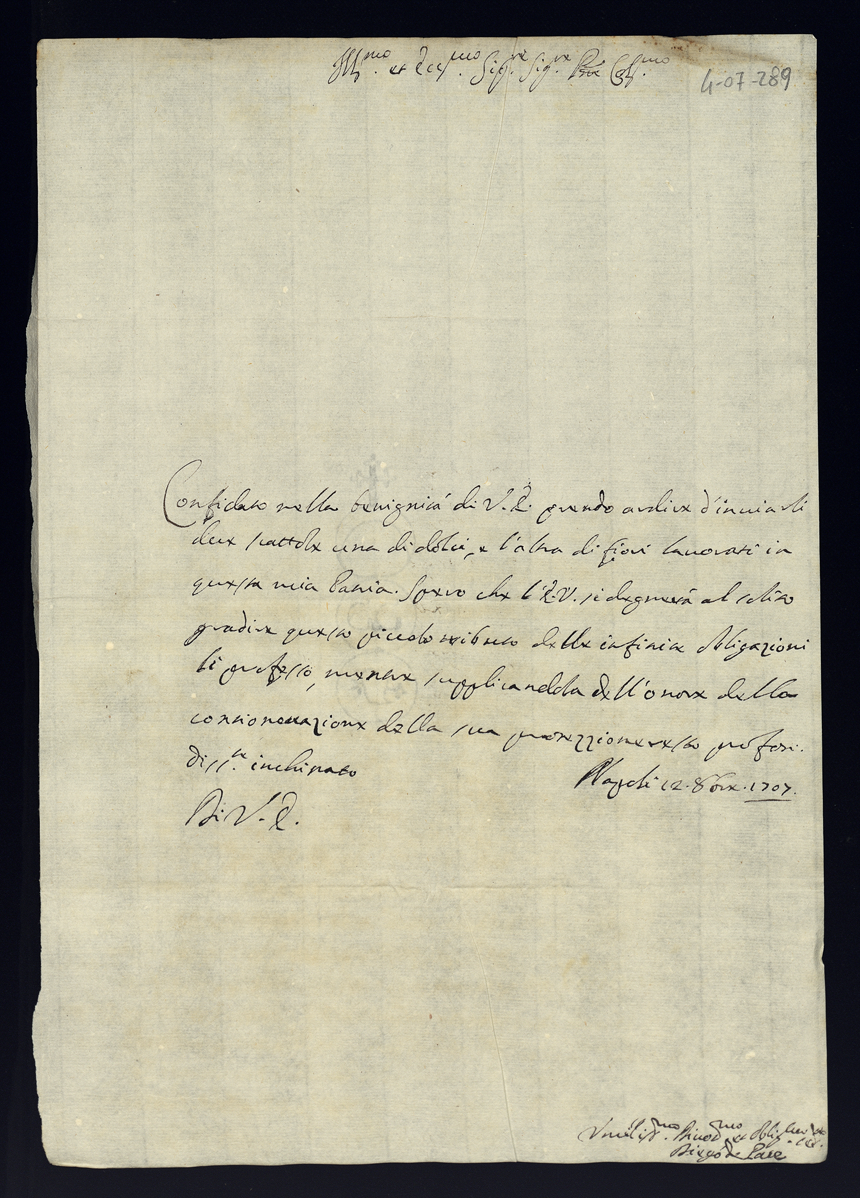 Ill.mo et Ecc.mo Sig.re Sig.re P.ne Col.mo
4-07-289
Confidato nella benignità di V.E. prendo ardire d'inviarli
due scattole una di dolci, e l'altra di fiori lavorati in
questa mia Patria. Spero che l'E.V. si degnerà al solito
gradire questo piccolo tributo delle infinite obligazioni
li professo, mentre supplicandola dell'onore della
continovazione della sua protezzione resto profon.
diss.te inchinato
Napoli 12. 8bre. 1707.
Di V.E.
Umiliss.mo Divot.mo et Oblig.mo
Diego de Pace